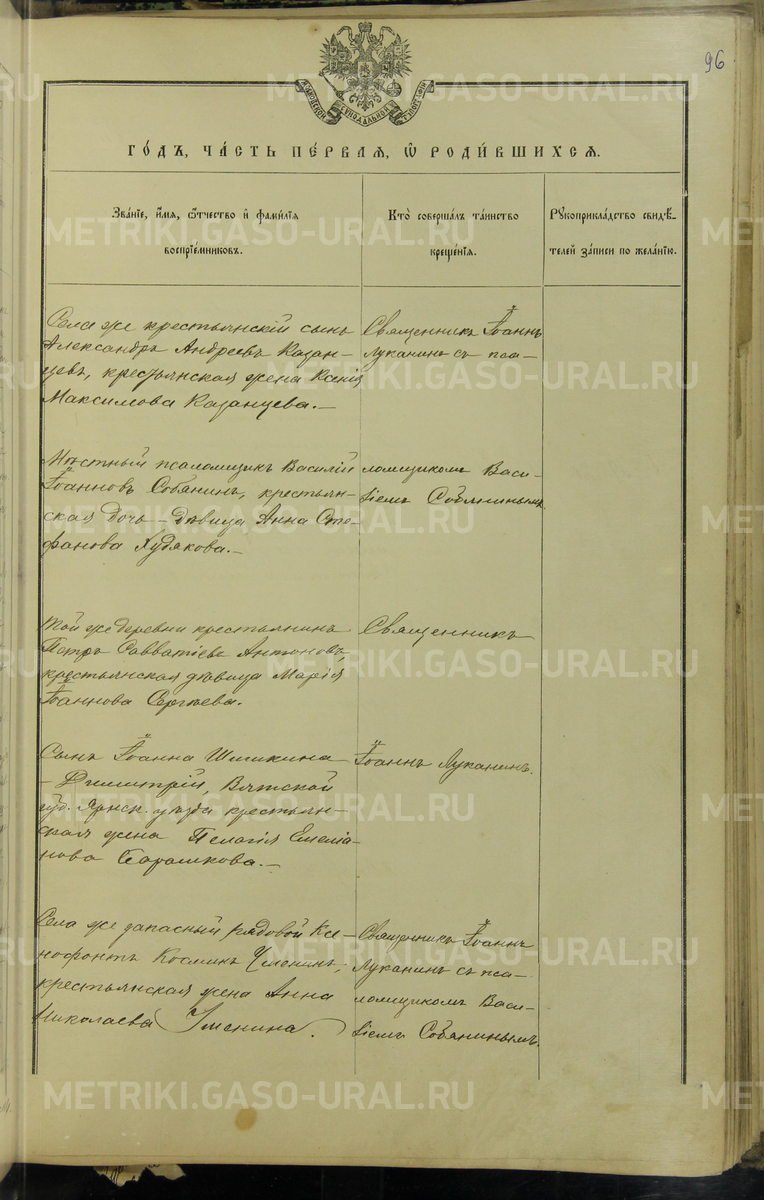 96
МОСКОВСКОЙ СѴНОДАЛЬНОЙ ТѴПОГРАФІИ
ГО́ДЪ, ЧА́СТЬ ПЕ́РВАЯ, Ѽ РОДИ́ВШИХСЯ.
Зва́нїе, и҆́мя, ѻ҆́тчество и҆ фами́лїя
воспрїе́мниковъ.
Кто̀ соверша́лъ та́инство
креще́нїя.
Рꙋкоприкла́дство свидѣ́-
телей за́писи по жела́нїю.
Села же крестьянскій сынъ
Александръ Андреевъ Казан-
цевъ, крестьянская жена Ксенія
Максимова Казанцева.—
Священникъ Іоаннъ
Луканинъ съ пса-
Мѣстный псаломщикъ Василій
Іоанновъ Собянинъ, крестьян-
ская дочь - дѣвица Анна Сте-
фанова Худякова.—
ломщикомъ Васи-
ліемъ Собянинымъ
Той же деревни крестьянинъ
Петръ Савватіевъ Антоновъ,
крестьянская дѣвица Марія
Іоаннова Сергѣева.
Священникъ
Сынъ Іоанна Шишкина
- Димитрій, Вятской
губ. Яранск. уѣзда крестьян-
ская жена Пелагія Емеліа-
нова
Іоаннъ Луканинъ.
Села же запасный рядовой Ксе-
нофонтъ Косминъ
крестьянская жена Анна
Николаева
Священникъ Іоаннъ
Луканинъ съ пса-
ломщикомъ Васи-
ліемъ Собянинымъ.
METRIKI.GASO-URAL.RU